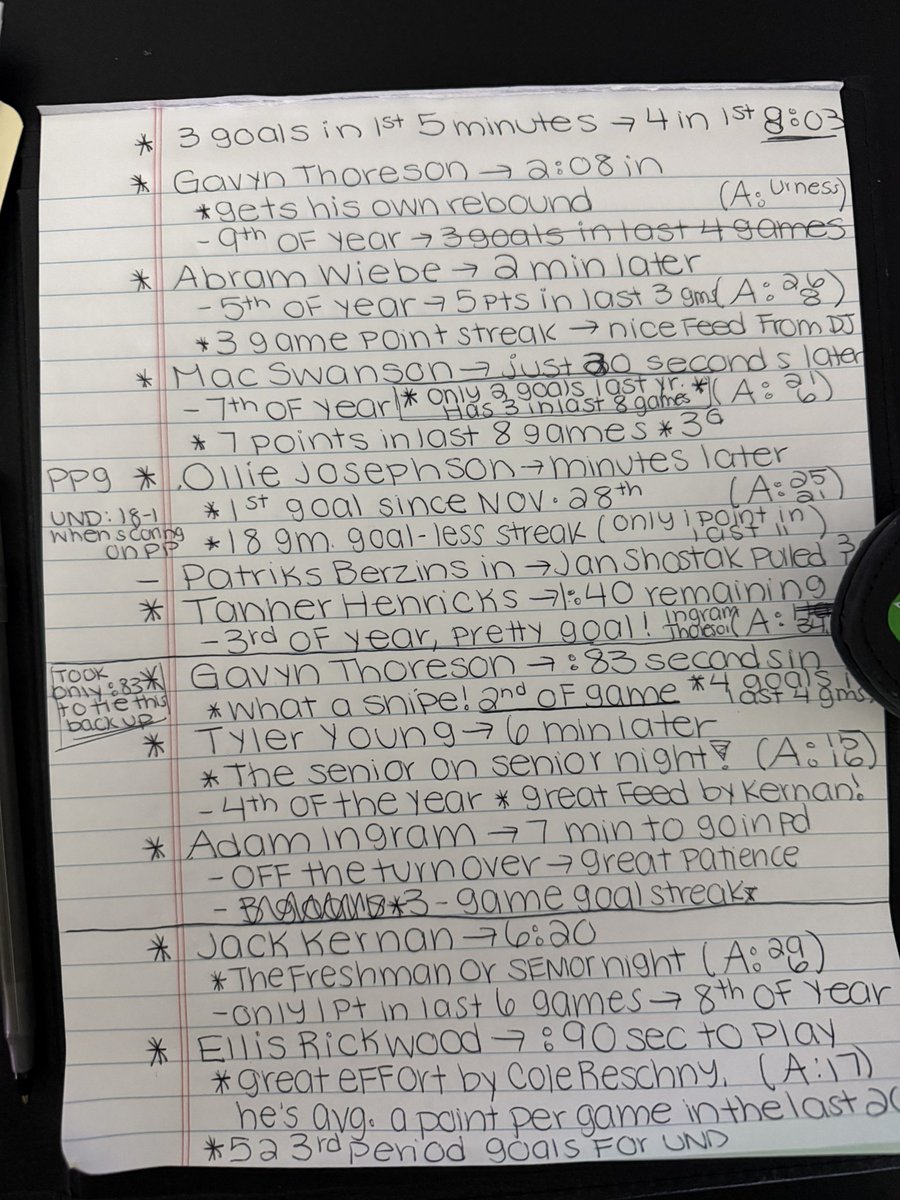 * 3 goals in 1st 5 minutes → 4 in 1st 8:03
* Gavyn Thoreson → 2:08 in
*gets his own rebound (A: Urness)
- 9th of year → 3 goals in last 4 games
* Abram Wiebe → 2 min later
- 5th of year → 5 pts in last 3 gms (A: 26 8)
*3 game point streak → nice feed from DJ
* Mac Swanson → just 30 seconds later
- 7th of year * only 2 goals last yr. * (A: 21 6)
Has 3 in last 8 games
* 7 points in last 8 games * 3G
PPG * Ollie Josephson → minutes later
UND: 18-1 when scoring on PP
*1st goal since Nov. 28th (A: 25 21)
*18 gm. goal-less streak (only 1 point in last 11)
- Patriks Berzins in → Jan Shostak pulled
* Tanner Henricks → 1:40 remaining
- 3rd of year, pretty goal! Ingram Thoreson (A:
Took only :83 to tie this back up
* Gavyn Thoreson → :83 seconds in
*what a snipe! 2nd of game *4 goals last 4 gms.
* Tyler Young → 6 min later
* The senior on senior night! (A: 15 16)
- 4th of the year * great feed by Kernan!
* Adam Ingram → 7 min to go in pd
- off the turnover → great patience
- *3-game goal streak*
* Jack Kernan → 6:20
*The Freshman or SENIOR night (A: 29 6)
- only 1 pt in last 6 games → 8th of year
* Ellis Rickwood → :90 sec to play
*great effort by Cole Reschny. (A:17)
he's avg. a point per game in the last 20
*52 3rd period goals for UND